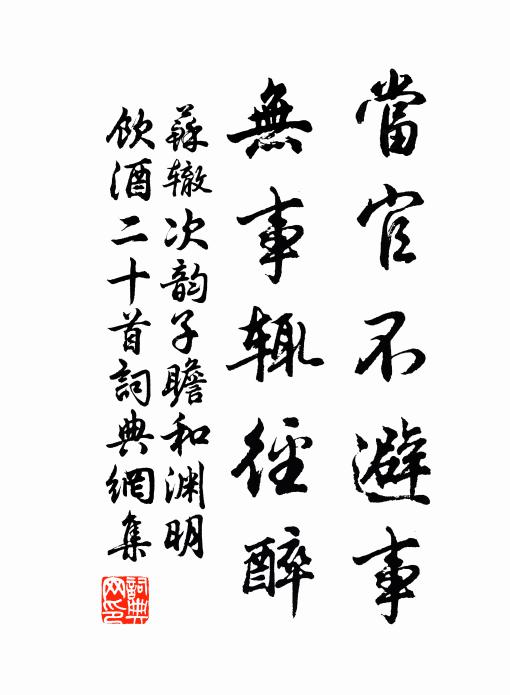 當官不避事
無事輒徑醉
蘇轍次韵子瞻和渊明
飲酒二十首詞典網集
詞典网印